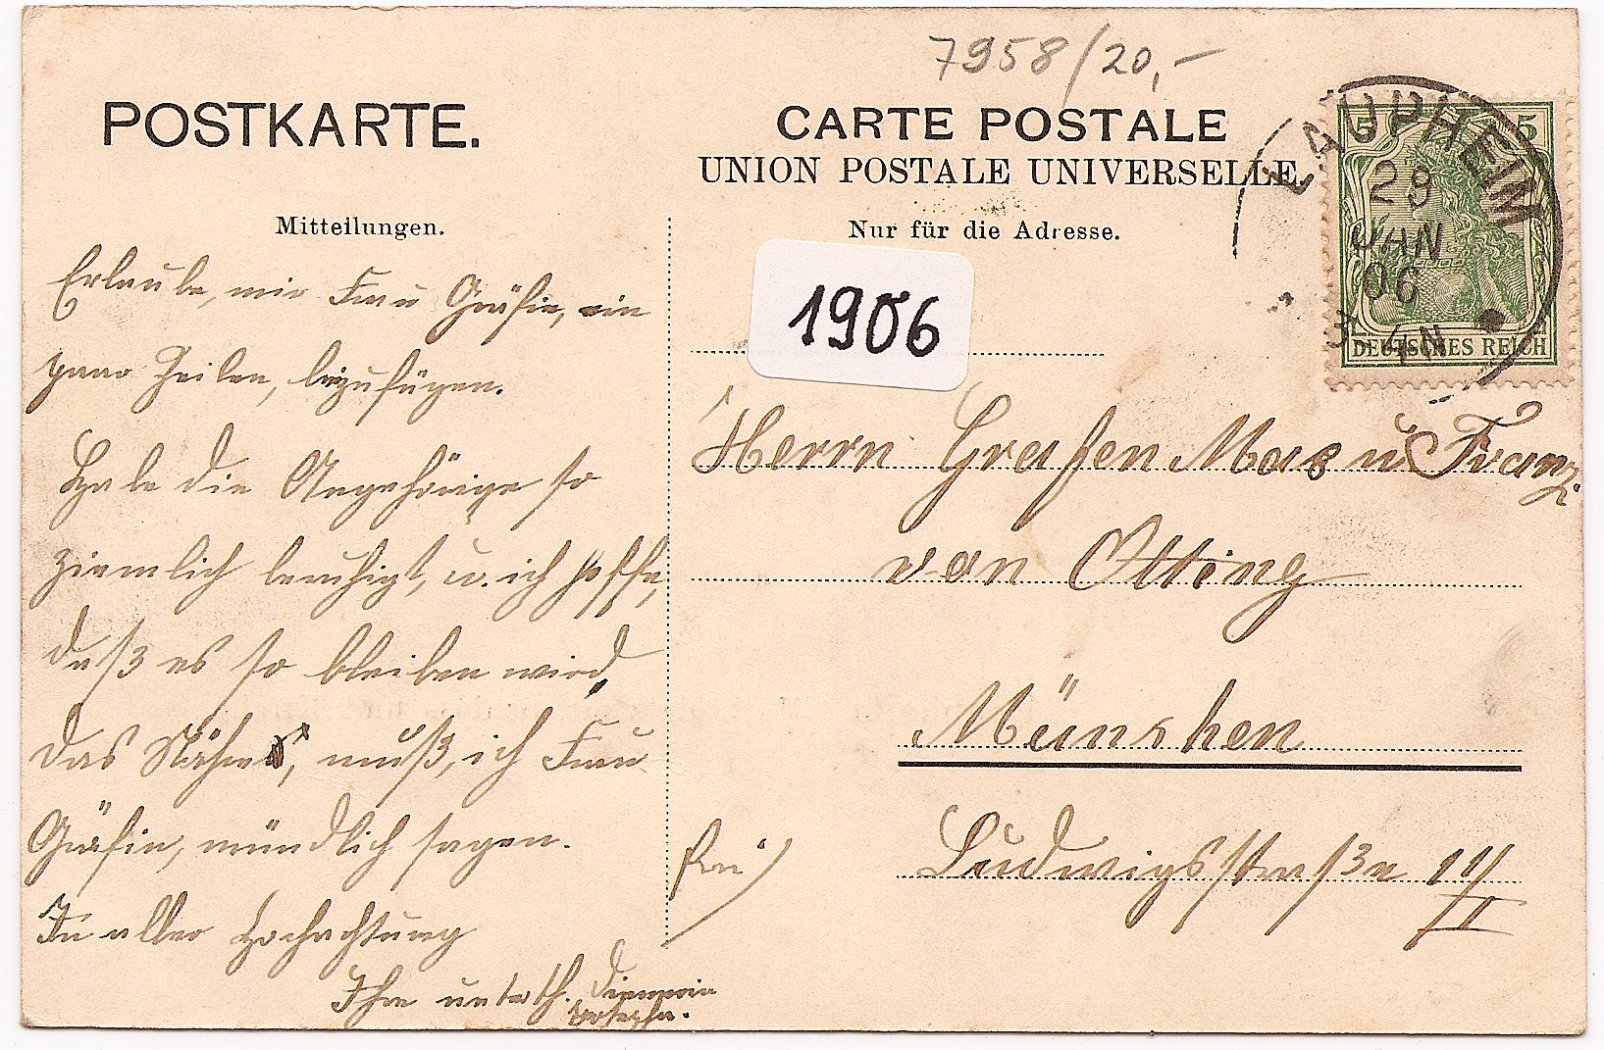 7958/20,-
POSTKARTE.
CARTE POSTALE
UNION POSTALE UNIVERSELLE
Mitteilungen.
Nur für die Adresse.
LAUPHEIM
29
JAN
06
3-4N
5 5
DEUTSCHES REICH
1906
Erlaube, mir Frau Gräfin, ein
paar Zeilen, beizufügen.
Habe die Angehörige so
ziemlich beruhigt, u. ich hoffe,
daß es so bleiben wird,
das Nähere, muß, ich Frau
Gräfin, mündlich sagen.
In aller Hochachtung
Ihre unterth. Dienerin
Josepha.
Herrn Grafen Max u Franz.
von Otting
München
Ludwigsstraße 11/II
frei